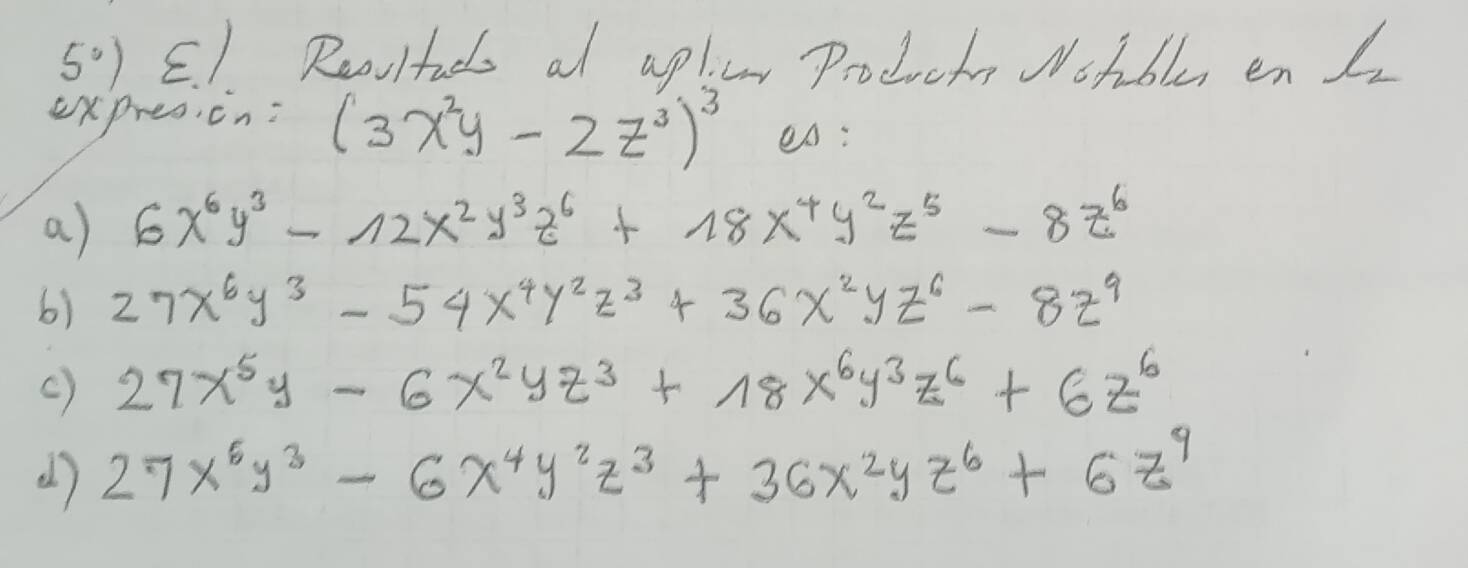 5º) El Resultado al aplicar Productos Notables en la
expresión: (3x²y - 2z³)³ es:
a) 6x⁶y³ - 12x²y³z⁶ + 18x⁴y²z⁵ - 8z⁶
b) 27x⁶y³ - 54x⁴y²z³ + 36x²yz⁶ - 8z⁹
c) 27x⁵y - 6x²yz³ + 18x⁶y³z⁶ + 6z⁶
d) 27x⁶y³ - 6x⁴y²z³ + 36x²yz⁶ + 6z⁹